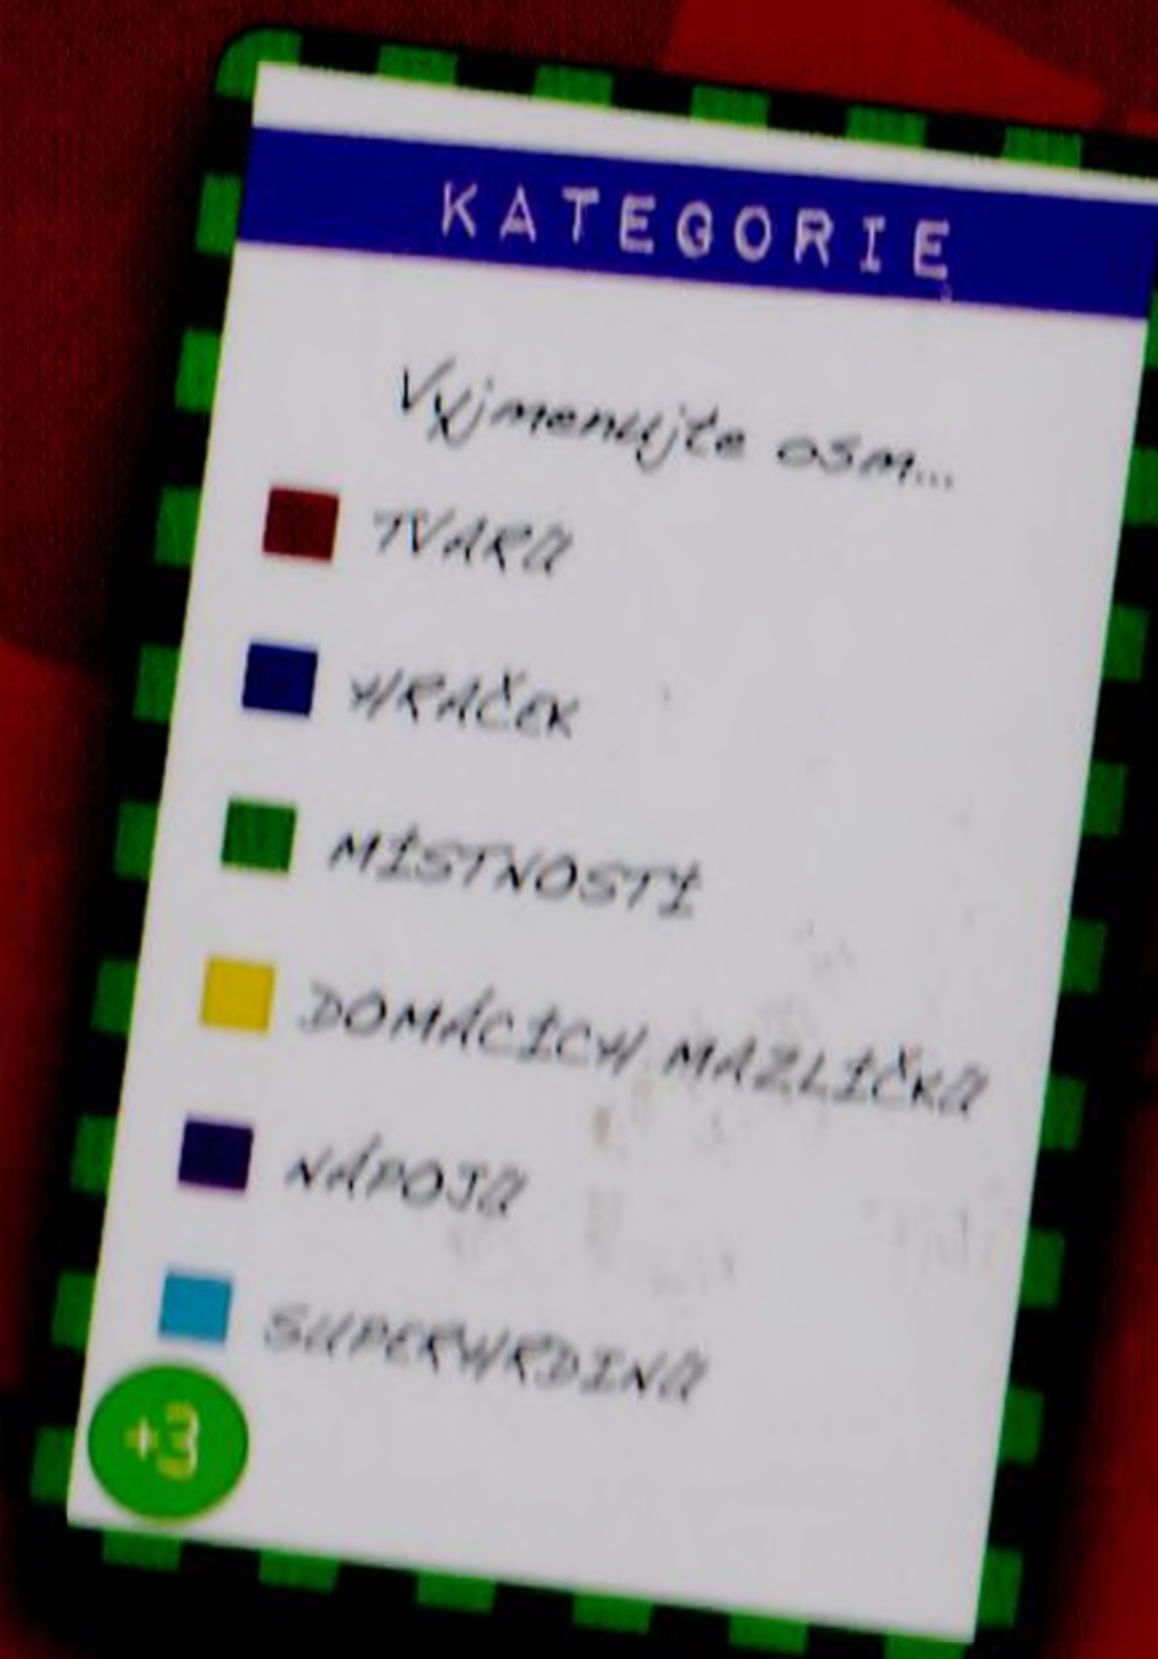 KATEGORIE
Vyjmenujte osm...
TVARŮ
HRAČEK
MÍSTNOSTÍ
DOMÁCÍCH MAZLÍČKŮ
NÁPOJŮ
SUPERHRDINŮ
+3